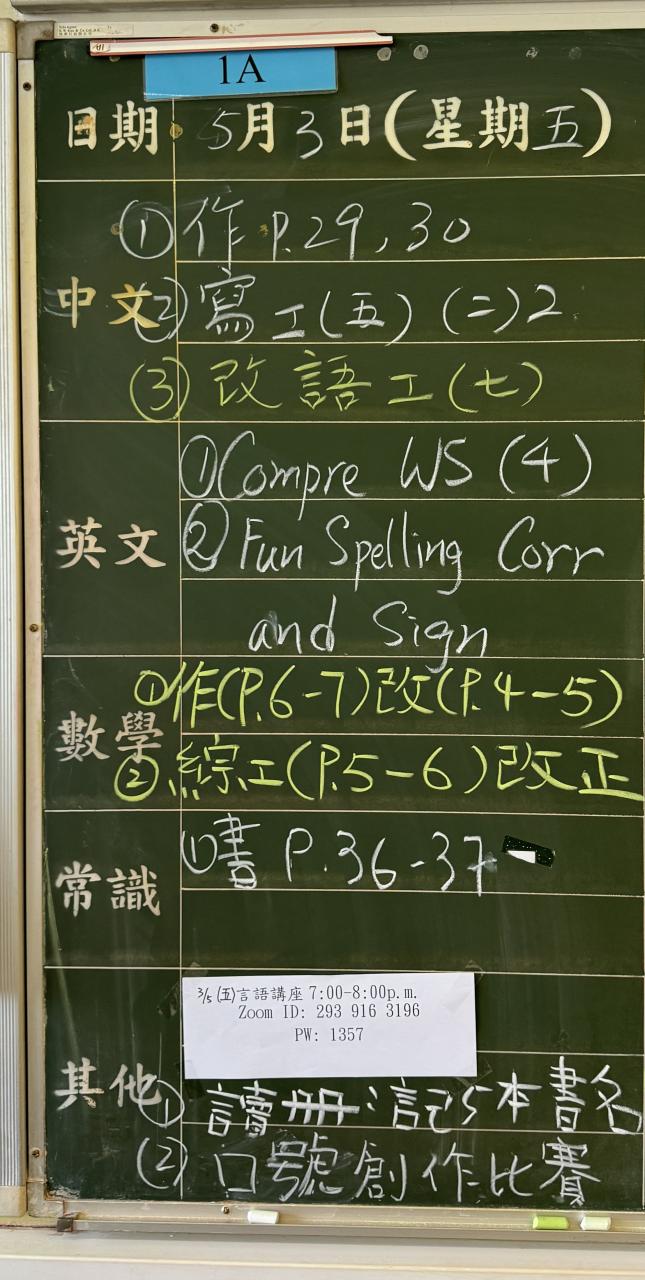 1A
日期 5月3日(星期五)
① 作 P.29,30
中文 ② 寫工(五)(二)2
③ 改語工(七)
① Compre WS (4)
英文 ② Fun Spelling Corr
and Sign
① 作(P.6-7)改(P.4-5)
數學
② 綜工(P.5-6)改正
① 書 P.36-37
常識
3/5 (五)言語講座 7:00-8:00p.m.
Zoom ID: 293 916 3196
PW: 1357
其他 ① 讀冊:記5本書名
(2) 口號創作比賽